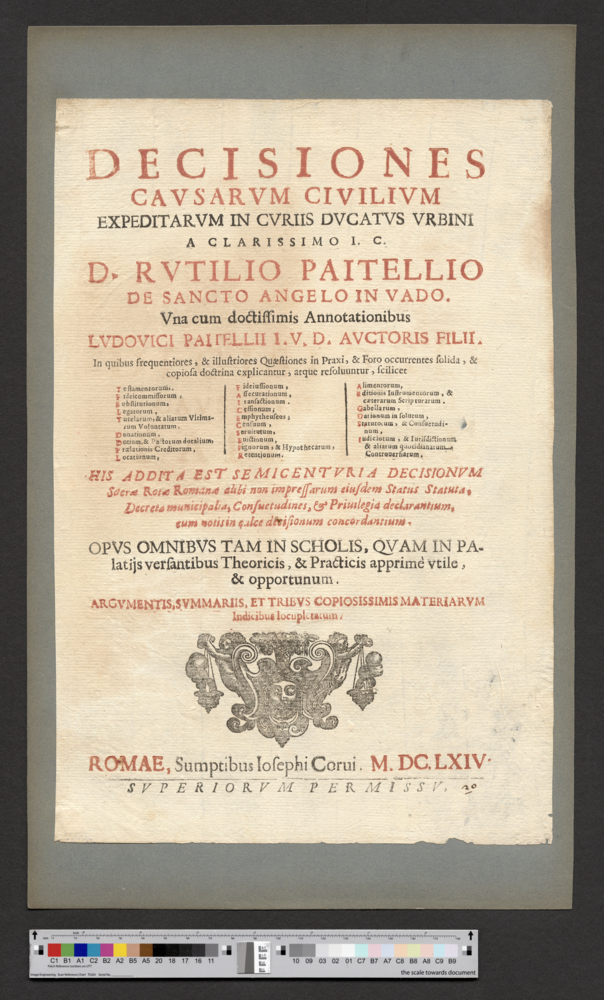 DECISIONES
CAVSARVM CIVILIVM
EXPEDITARVM IN CVRIIS DVCATVS VRBINI
A CLARISSIMO I. C.
D. RVTILIO PAITELLIO
DE SANCTO ANGELO IN VADO.
Vna cum doctissimis Annotationibus
LVDOVICI PAITELLII I. V. D. AVCTORIS FILII.
In quibus frequentiores, & illustriores Quæstiones in Praxi, & Foro occurrentes solida, &
copiosa doctrina explicantur, atque resoluuntur, scilicet
Testamentorum,
Fideicommissorum,
Substitutionum,
Legatorum,
Tutelarum, & aliarum Vltima-
rum Voluntatum,
Donationum,
Dotium, & Pactorum dotalium,
Prælationis Creditorum,
Locationum,
Fideiussionum,
Assecurationum,
Transactionum,
Cessionum,
Emphyteuseos,
Censuum,
Seruitutum,
Euictionum,
Pignorum, & Hypothecarum,
Retentionum,
Alimentorum,
Editionis Instrumentorum, &
cæterarum Scripturarum,
Gabellarum,
Dationum in solutum,
Statutorum, & Consuetudi-
num,
Iudiciorum, & Iurisdictionum
& aliarum quotidianarum
Controuersiarum,
HIS ADDITA EST SEMICENTVRIA DECISIONVM
Sacræ Rotæ Romanæ alibi non impressarum eiusdem Status Statuta,
Decreta municipalia, Consuetudines, & Priuilegia declarantium,
cum notis in calce decisionum concordantium.
OPVS OMNIBVS TAM IN SCHOLIS, QVAM IN PA-
latijs versantibus Theoricis, & Practicis apprimè vtile,
& opportunum.
ARGVMENTIS, SVMMARIIS, ET TRIBVS COPIOSISSIMIS MATERIARVM
Indicibus locupletatum.
ROMAE, Sumptibus Iosephi Corui. M. DC. LXIV.
SVPERIORVM PERMISSV. 20
C1 B1 A1 C2 B2 A2 B5 A5 20 18 17 16 11 10 09 03 02 01 C7 B7 A7 C8 B8 A8 C9 B9
the scale towards document